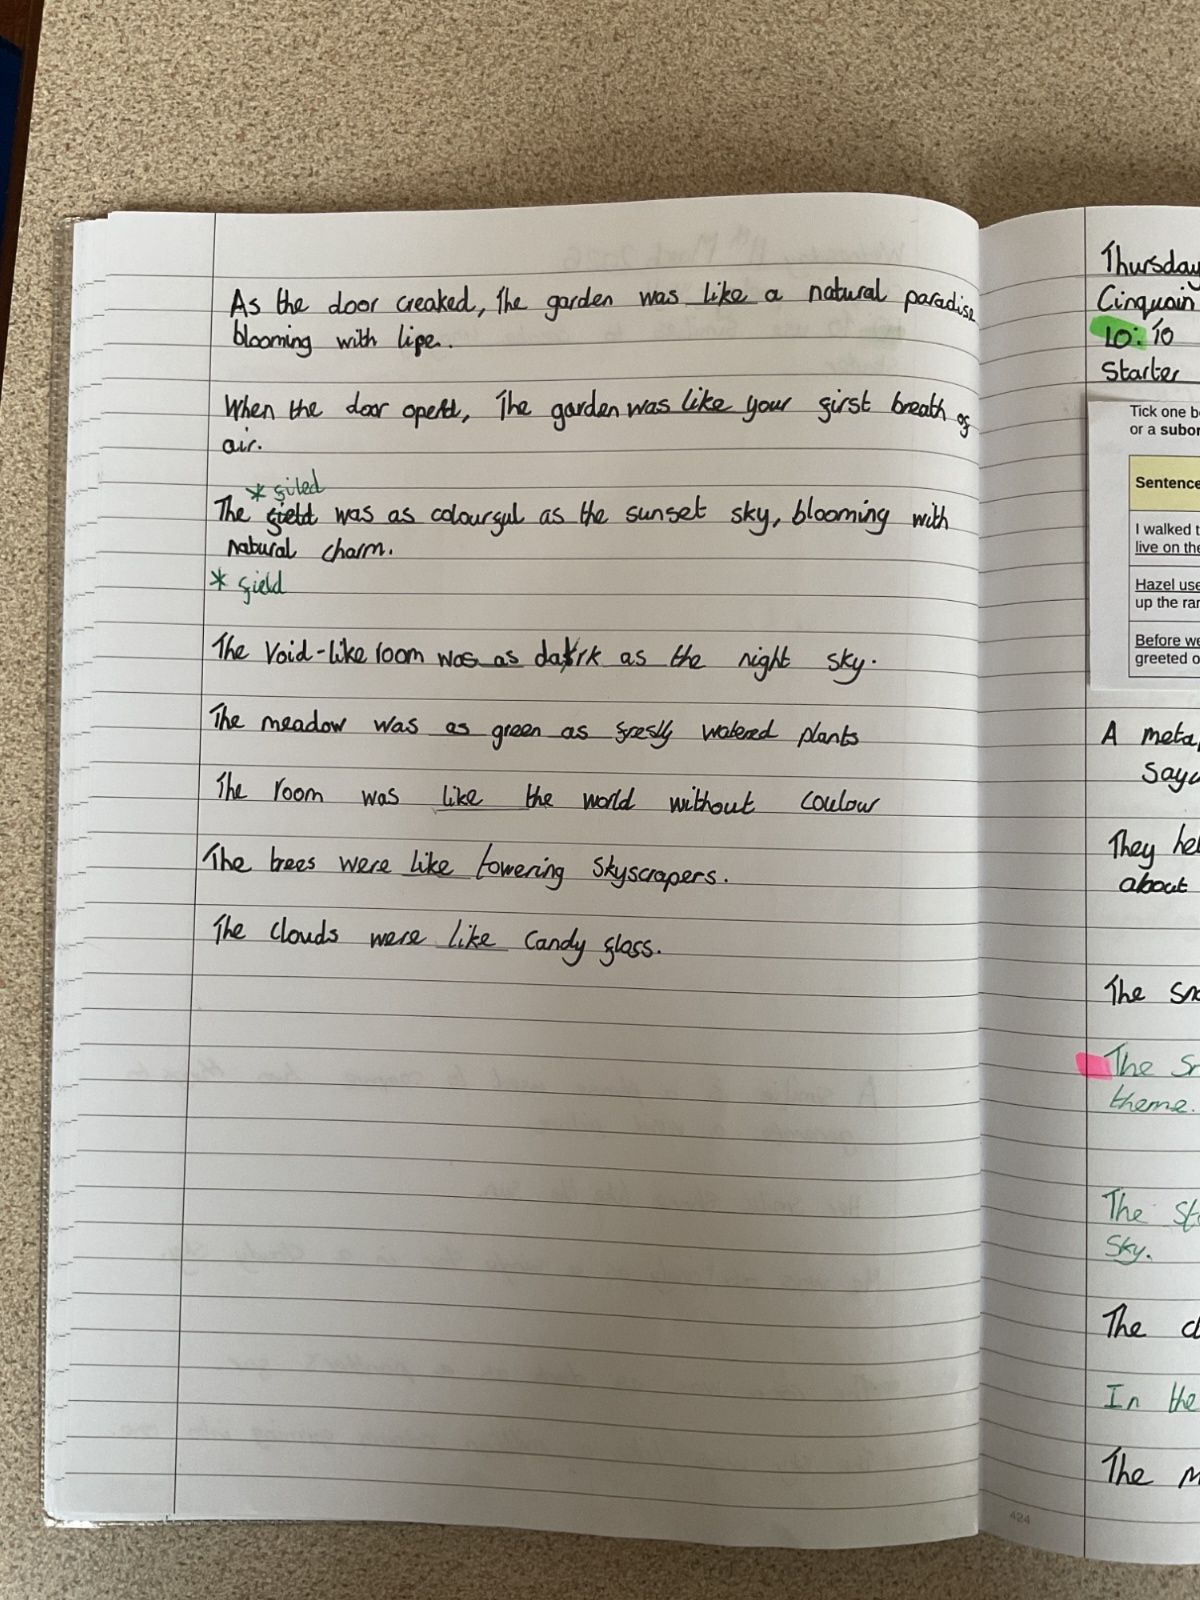 As the door creaked, The garden was like a natural paradise
blooming with life.
When the door opend, The garden was like your first breath of
air.
* filed
The field was as colourful as the sunset sky, blooming with
natural charm.
* field
The Void-like room was as dark as the night sky.
The meadow was as green as freslly watered plants
The room was like the world without coulour
The trees were like towering Skyscrapers.
The clouds were like Candy floss.
Thursday
Cinquain
LO: To
Starter
Tick one b
or a subor
Sentence
I walked t
live on the
Hazel use
up the rar
Before we
greeted o
A meta
Say
They hel
about
The Sn
The Sn
theme.
The St
Sky.
The c
In the
The M
424